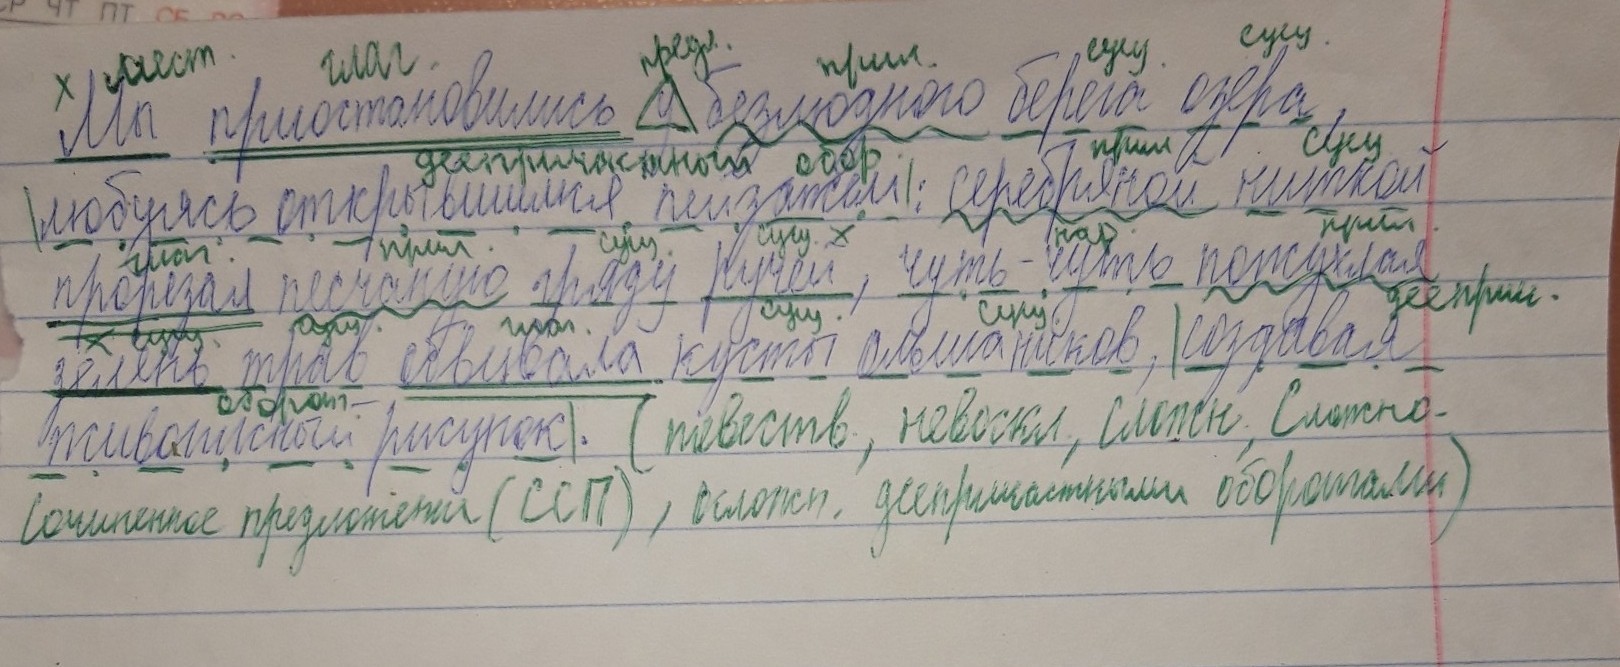 ЧТ ПТ СБ
х мест. глаг. предл. прил. сущ. сущ.
Мы приостановились у безлюдного берега озера,
деепричастный обор. прил сущ
|любуясь открывшимся пейзажем|: серебряной ниткой
глаг. прил. сущ сущ. х нар. прил.
прорезал песчаную гряду ручей, чуть-чуть пожухлая
х сущ. сущ. глаг. сущ. сущ. дееприч.
зелень трав обвивала кусты ольшаников, |создавая
оборот
живописный рисунок|. (повеств., невоскл., сложн., Сложно-
сочиненное предложение (ССП), осложн. деепричастными оборотами)